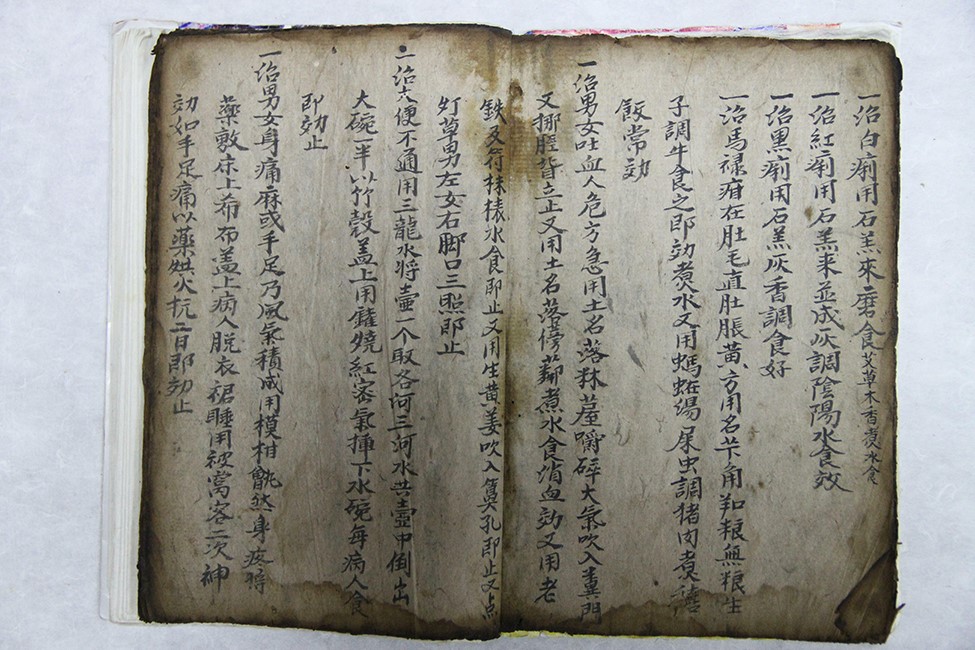 一治白痢用石羔來磨食艾草木香煮水食
一治紅痢用石羔来並成灰調陰陽水食效
一治黑痢用石羔灰香調食好
一治馬禄疳在肚毛直肚脹黃方用名苄角和粮無粮生
子調牛食之即効煮水又用螞蚯湯屎虫調猪肉煮
飯常効
一治男女吐血人危方急用土名落秣蓳嚼碎大氣吹入糞門
又挪脛背立正又用土名落蒡薢煮水食消血効又用老
鉄及符抹㨾水食即止又用生黄姜吹入鼻孔即止又点
灯草男左女右脚口三照即止
一治大便不通用三龍水將壺一个取各河三河水共壺中倒出
大碗一半以竹殼盖上用鑵燒紅宻氣揷下水碗每病人食
即効止
一治男女身痛麻或手足乃風氣積成用模柑 然身疼將
藥敷床上希布盖上病人脱衣裙睡用被窩宻二次神
効如手足痛以藥烘火抗二日即効止